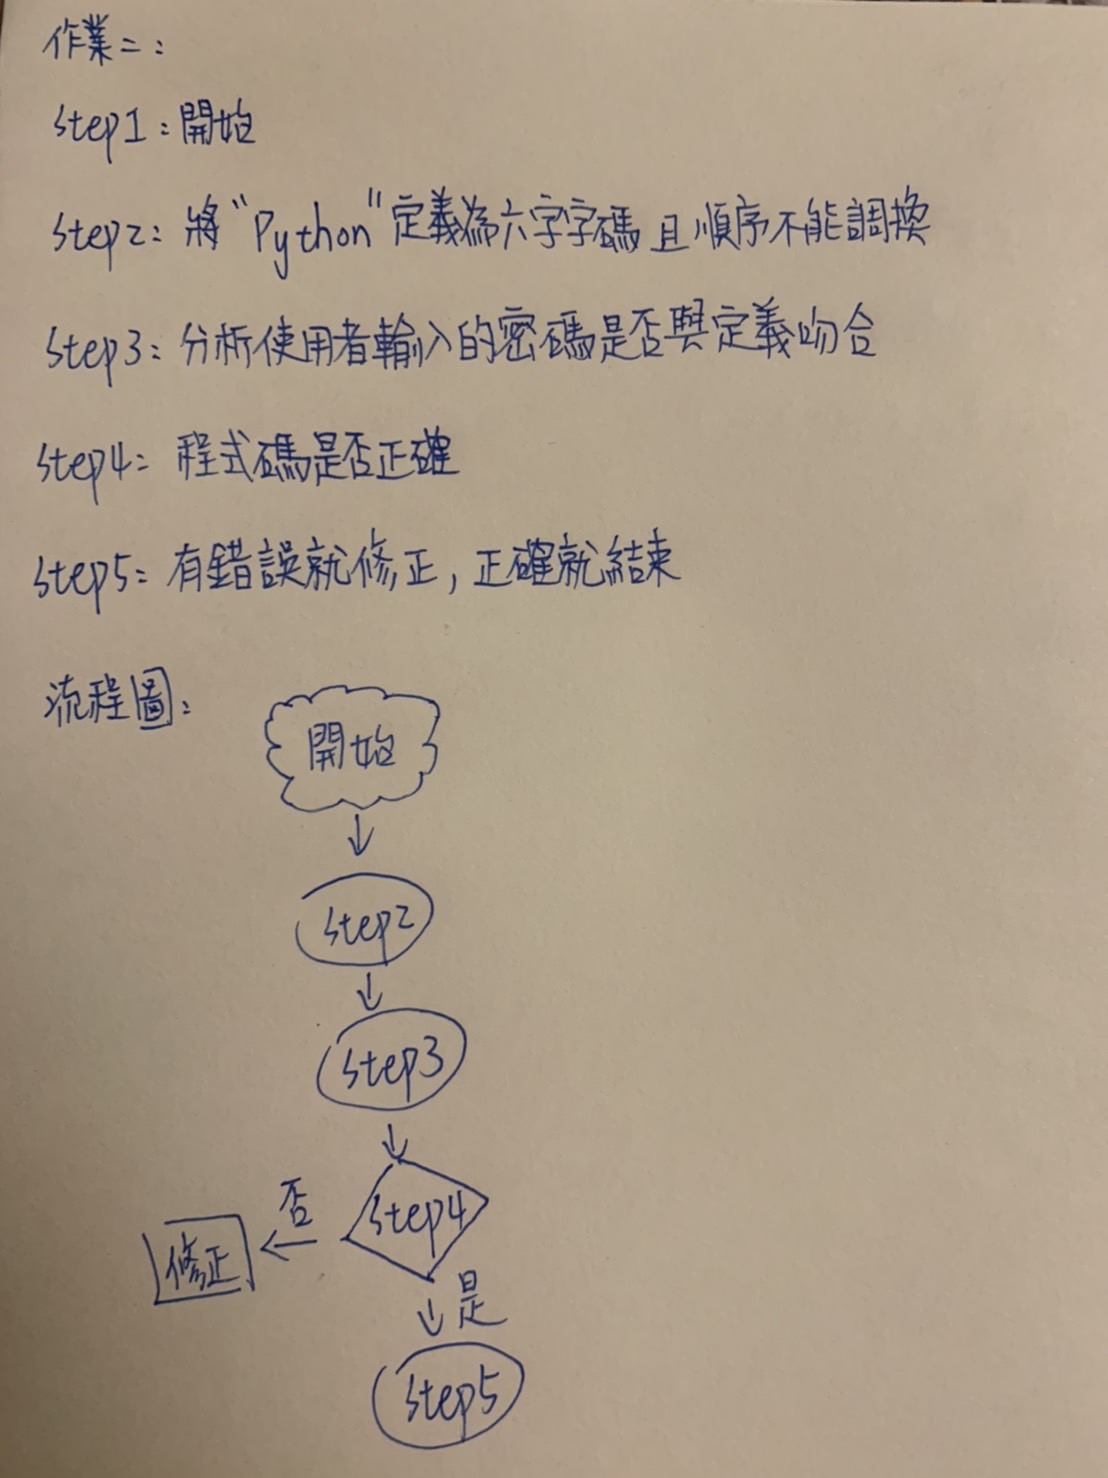 作業二：
step1：開始
step2：將“Python”定義為六字字碼且順序不能調換
step3：分析使用者輸入的密碼是否與定義吻合
step4：程式碼是否正確
step5：有錯誤就修正，正確就結束
流程圖：
開始
step2
step3
step4
否
修正
是
step5